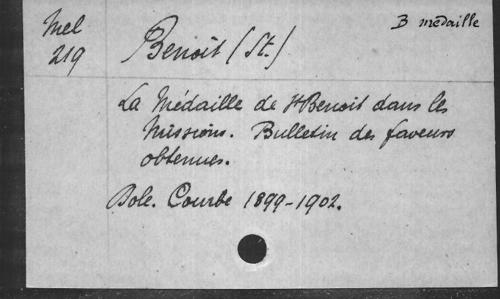 Mel
219
Benoit (St.)
B médaille
La Médaille de St Benoit dans les
Missions. Bulletin des faveurs
obtenues.
Dole. Courbe 1899-1902.